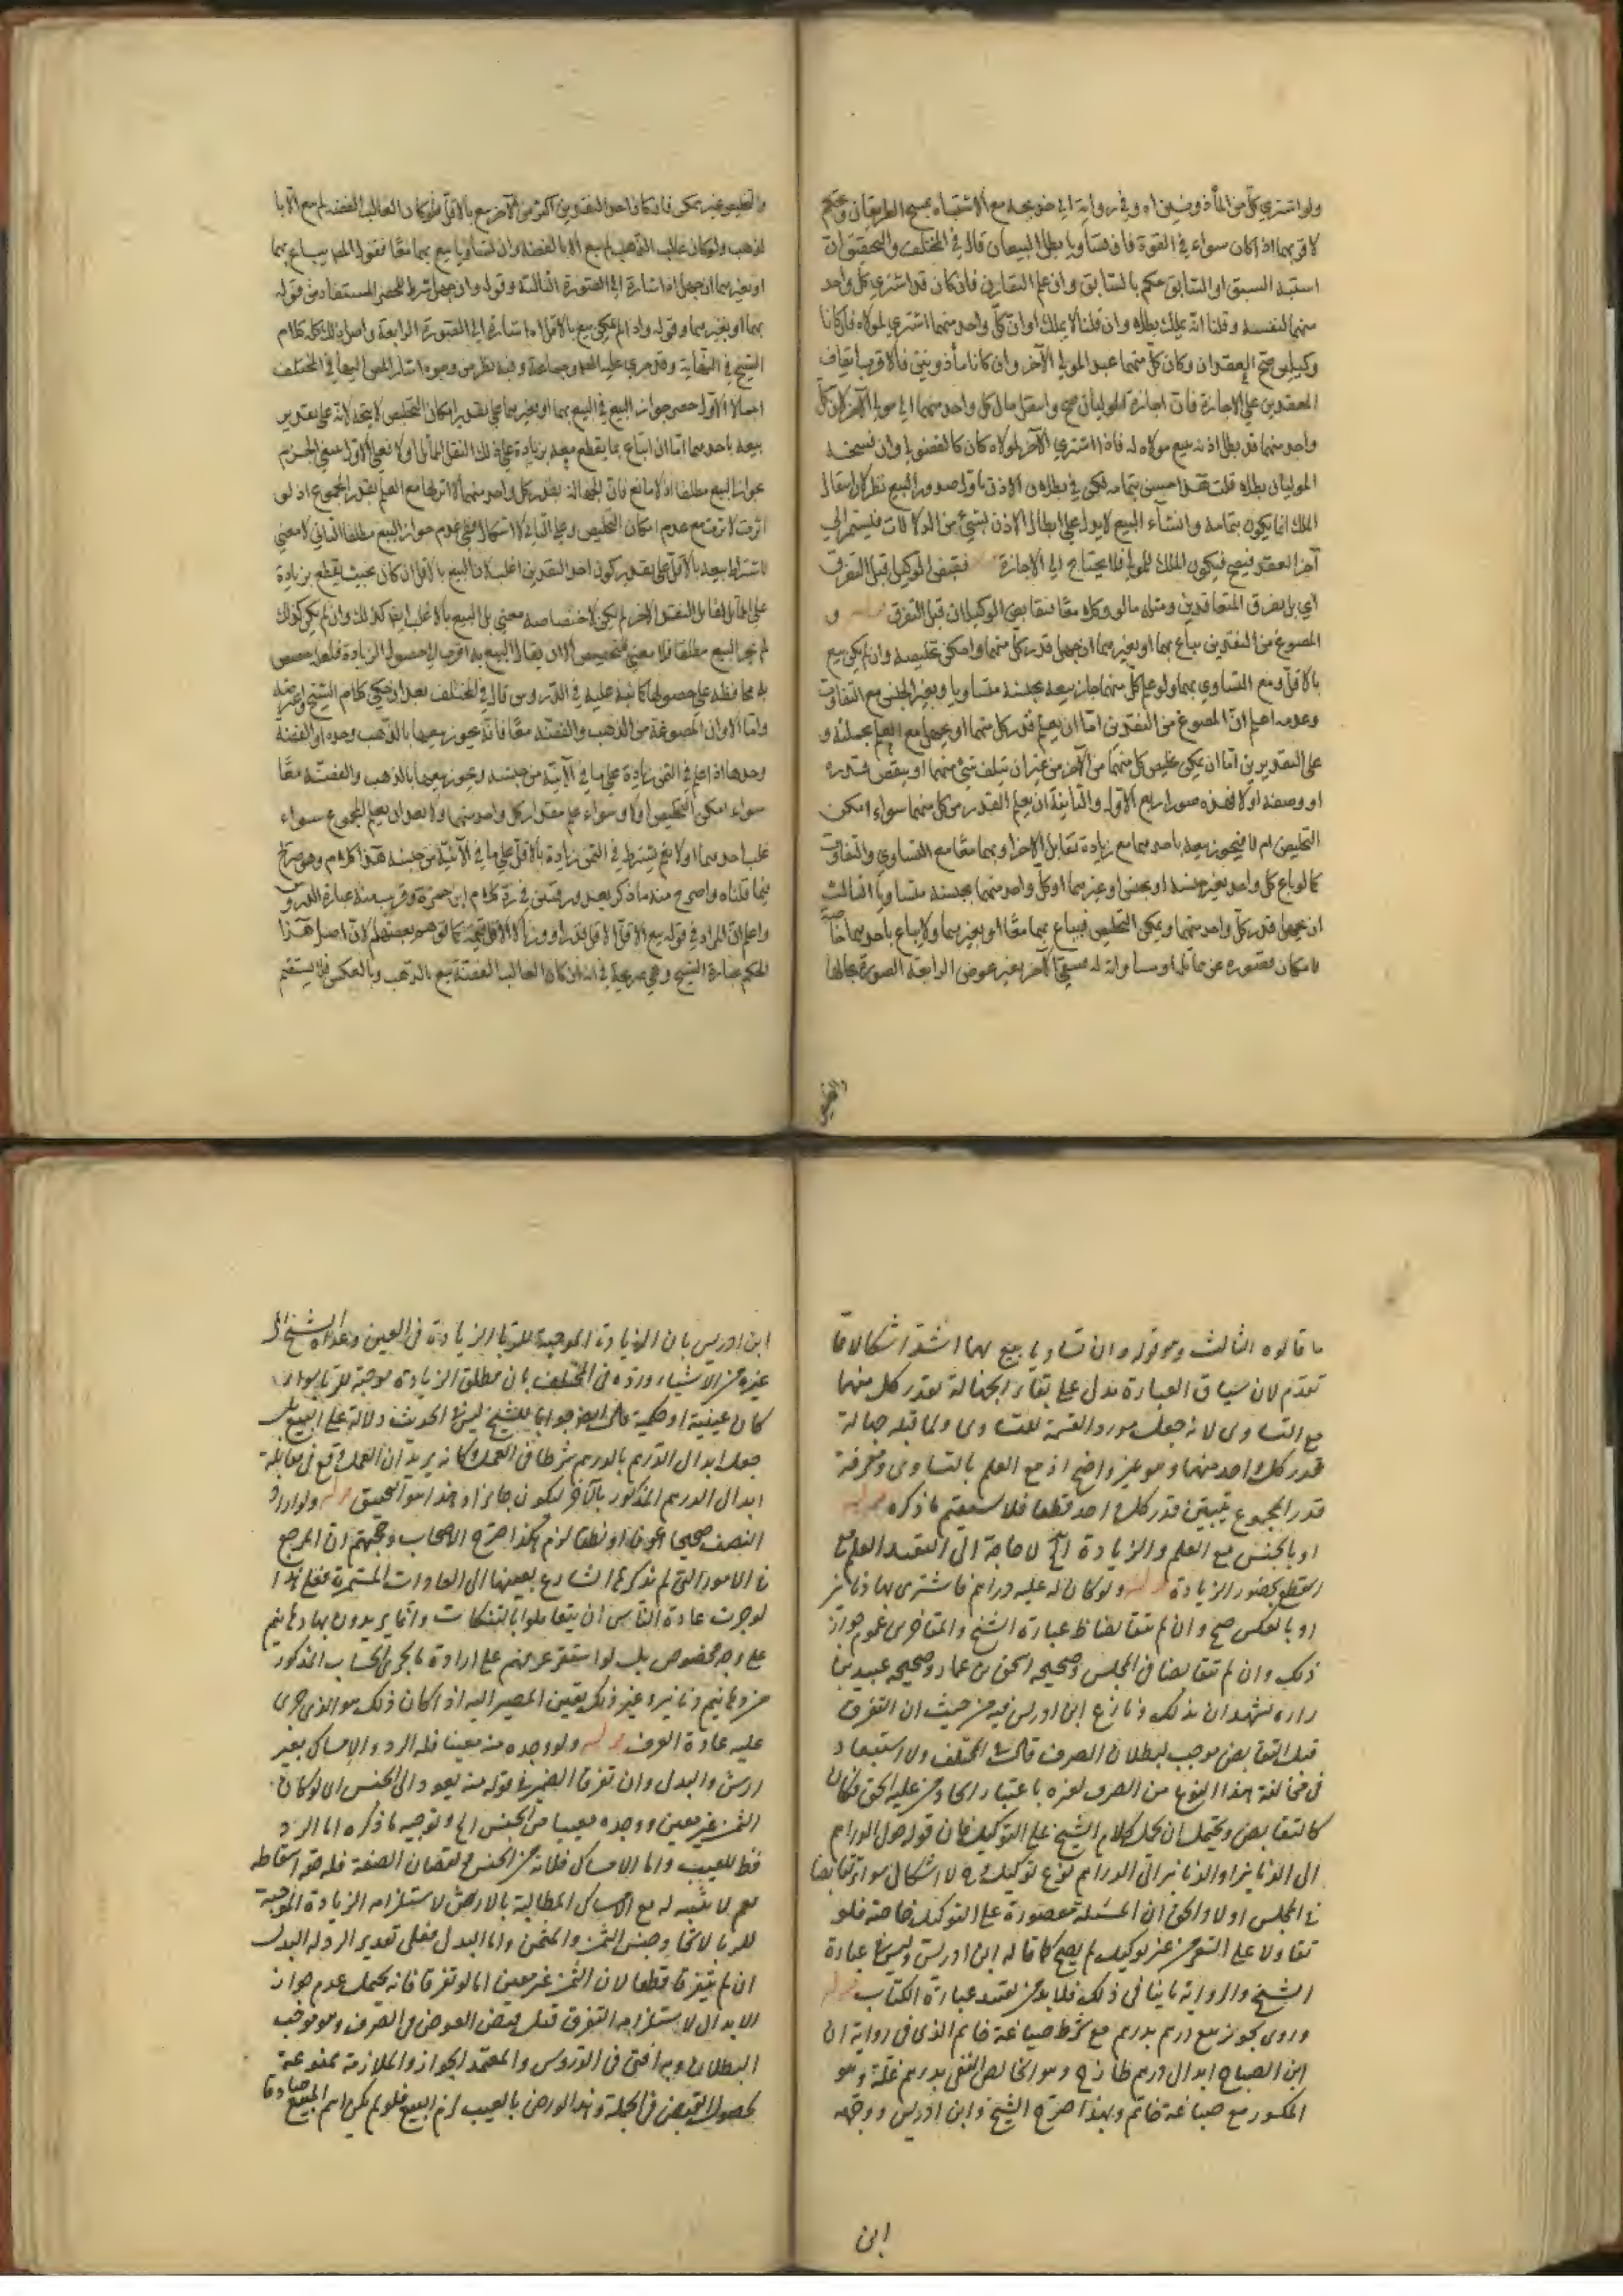 ولو اشترى كل من المأذونين اه وفي رواية ابي خديجة مع الاشتباه يمسح الطريقان ويحكم
لاقربهما اذا كان سواء في القوة فان تساويا بطل البيعان قال في المختلف والتحقيق ان
اشتبه السبق او السابق حكم بالسابق وان علم التقارن فان كان قد اشترى كل واحد
منهما لنفسه وقلنا انه يملك بطلا وان قلنا لا يملك او ان كل واحد منهما اشترى لمولاه فان كانا
وكيلين صح العقدان وكان كل منهما عبد المولى الآخر وان كانا مأذونين فالاقرب ايقاف
العقدين على الاجازة فان اجازه الموليان صح وانتقل مال كل واحد منهما الى مولى الآخر لان كل
واحد منهما قد بطل اذنه ببيع مولاه له فاذا اشترى الآخر لمولاه كان كالفضولي وان فسخه
الموليان بطلا قلت هذا حسن بتمامه لكن في بطلان الاذن باول صدور البيع نظر لان انتقال
الملك انما يكون بتمامه وانشاء البيع لا يدل على ابطال الاذن بشيء من الدلالات فيستمر الى
آخر العقد فيصح فيكون الملك للمولى فلا يحتاج الى الاجازة فقبض الوكيل قبل التفرق
اي بل تفرق المتعاقدين ومثله ما لو وكلا معا فتقابض الوكيلان قبل التفرق قوله و
المصوغ من النقدين يباع بهما او بغيرهما ان جهل قدر كل منهما وامكن تخليصه وان لم يكن بيع
بالاقل ومع التساوي بهما ولو علم كل منهما جاز بيعه بجنسه متساويا وبغير الجنس مع التفاوت
وعدمه اعلم ان المصوغ من النقدين اما ان يعلم قدر كل منهما او يجهل مع العلم بجملته و
على التقديرين اما ان يمكن تخليص كل منهما من الآخر من غير ان يتلف شيء منهما او ينقص قدره
او وصفه او لا فهذه صور اربع الاولى والثانية ان يعلم القدر من كل منهما سواء امكن
التخليص ام لا فيجوز بيعه باحدهما مع زيادة تقابل الآخر او بهما معا مع التساوي والتفاوت
كما لو باع كل واحد بغير جنسه او بجنس او غيرهما او كل واحد منهما بجنسه متساويا الثالث
ان يجهل قدر كل واحد منهما ويمكن التخليص فيباع بهما معا او بغيرهما ولا يباع باحدهما خاصة
الرابعة الصورة بحالها
والتخليص غير ممكن فان كان احد النقدين اكثر من الآخر بيع بالاقل فلو كان الغالب الفضة لم يبع الا با
لذهب ولو كان غالب الذهب لم يبع الا بالفضة وان تساويا بيع بهما معا فقول المص يباع بهما
او بغيرهما ان جهل اه اشارة الى الصورة الثالثة وقوله وان جهل شرط للحصر المستفاد من قوله
بهما او بغيرهما وقوله وان لم يمكن بيع بالاقل اه اشارة الى الصورة الرابعة واصل ذلك كله كلام
الشيخ في النهاية وقد جرى عليه المص وجماعة وفيه نظر من وجوه اشار المص اليها في المختلف
اجمالا الاول حصر جواز البيع في البيع بهما او بغيرهما على تقدير امكان التخليص لا يتجه لانه على تقدير
بيعه باحدهما اما ان يباع بما يقطع معه بزيادة على ذلك النقل المماثل او لا فعلى الاول ينبغي الجزم
بجواز البيع مطلقا اذ لا مانع فان الجهالة بقدر كل واحد منهما لا اثر لها مع العلم بقدر المجموع اذ لو
اثرت لاثرت مع عدم امكان التخليص وعلى الثاني لا اشكال في عدم جواز البيع مطلقا الثاني لا معنى
لاشتراط بيعه بالاقل على تقدير كون احد النقدين اغلب لان البيع بالاقل ان كان بحيث يقطع بزيادة
على ما يقابل النقد الآخر لم يكن لاختصاصه معنى بل البيع بالاغلب ايضا كذلك وان لم يكن كذلك
لم يجز البيع مطلقا فلا معنى للتخصيص الا ان يقال البيع به اقرب الى حصول الزيادة فلعله خصص
به محافظة على حصولها كما نبه عليه في الدروس قال في المختلف بعد ان حكى كلام الشيخ
واما الاواني المصوغة من الذهب والفضة معا فانه يجوز بيعها بالذهب وحده او الفضة
وحدها اذا علم في الثمن زيادة على ما في الآنية من جنسه ويجوز بيعها بالذهب والفضة معا
سواء امكن التخليص او لا وسواء علم مقدار كل واحد منهما او لا بعد ان يعلم المجموع سواء
غلب احدهما او لا نعم يشترط في الثمن زيادة بالاقل على ما في الآنية من جنسه هذا كلامه وهو صريح
فيما قلناه واصرح منه ما ذكر بعد ورقتين في رد كلام ابن حمزة وقريب منه عبارة الدروس
واعلم ان المراد في قوله بيع الاقل الاقل قدرا ووزنا لا الاقل قيمة كما توهم بعضهم لان اصل هذا
الحكم عبارة الشيخ وهي صريحة في انه ان كان الغالب الفضة بيع بالذهب وبالعكس فلا يستقيم
والتخليص
ما قالوه الثالث وهو قوله وان تساويا بيع بهما اشد اشكالا مما
تقدم لان سياق العبارة تدل على بقاء الجهالة بقدر كل منهما
مع التساوي لانه جعله مورد القسمة للتساوي ولما قبله جهالة
قدر كل واحد منهما وهو غير واضح اذ مع العلم بالتساوي ومعرفة
قدر المجموع يتبين قدر كل واحد قطعا فلا يستقيم ما ذكره قوله
او بالجنس مع العلم والزيادة الخ لا حاجة الى التقييد العلم مع
القطع بحضور الزيادة قوله ولو كان له عليه دراهم فاشترى بها دنانير
او بالعكس صح وان لم يتقابضا ظ عبارة الشيخ والمتاخرين عموم جواز
ذلك وان لم يتقابضا في المجلس وصحيحه اسحق بن عمار وصحيحه عبيد بن
زراره تشهدان بذلك ونازع ابن ادريس فيه من حيث ان التفرق
قبل التقابض موجب لبطلان الصرف قال في المختلف ولا استبعاد
في مخالفة هذا النوع من الصرف لغيره باعتبار اتحاد من عليه الحق فكان
كالتقابض ويحتمل ان يحمل كلام الشيخ على التوكيل فان قوله حول الدراهم
الى الدنانير او الدنانير الى الدراهم نوع توكيل وح لا اشكال سواء تقابضا
في المجلس او لا والحق ان المسئلة مقصورة على التوكيل خاصة فلو
تقاولا على التعويض من غير توكيل لم يصح كما قاله ابن ادريس وليس في عبارة
الشيخ والرواية ما ينافي ذلك فلا بد من تقييد عبارة الكتاب قوله
وروي يجوز بيع درهم بدرهم مع شرط صياغة خاتم الذي في رواية ابن
ابن الصباح ابدال درهم طازج وهو الخالص النقي بدرهم غلة وهو
المكسور مع صياغة خاتم وبهذا صرح الشيخ وابن ادريس ووجهه
ابن
ابن ادريس بان الزيادة الموجبة للربا الزيادة في العين
غيره من الاشياء ورده في المختلف بان مطلق الزيادة موجبة للربا سواء
كان عينية او حكمية قال في جوابا للشيخ ليس في الحديث دلالة على البيع بل
جعل ابدال الدرهم بالدرهم شرطا في العمل وكانه يريد ان العمل وقع في مقابلة
ابدال الدرهم المذكور بالآخر ليكون جايزا وهذا هو التحقيق قوله ولو اراد
النصف صحيحا عرفا او نطقا لزم هكذا صرح الاصحاب وحجتهم ان المرجع
في الامور التي لم يذكرها الشارع بعينها الى العادات المستمرة فعلى هذا
لو جرت عادة الناس ان يتعاملوا بالتنكات وانما يريدون بها دهانيم
على وجه مخصوص بل لو استقر عرفهم على ارادة ما يجري الحساب المذكور
من دهانيم ودنانير وغير ذلك تعين المصير اليه اذا كان ذلك هو الذي جرى
عليه عادة العرف قوله ولو وجده من معينا فله الرد والامساك بغير
ارش والبدل وان تفرقا الضمير في قوله منه يعود الى الجنس اي لو كان
الثمن غير معين ووجده معيبا من الجنس الخ وتوجيه ما ذكره اما الرد
فظ للعيب واما الامساك فلانه من الجنس ونقصان الصفة فله حق اسقاطه
نعم لا يثبت له مع الامساك المطالبة بالارش لاستلزامه الزيادة الموجبة
للربا لاتحاد جنس الثمن والمثمن واما البدل فعلى تقدير الرد له البدل
ان لم يتفرقا قطعا لان الثمن غير معين اما لو تفرقا فانه يحتمل عدم جواز
الابدال لاستلزامه التفرق قبل قبض العوض في الصرف وهو موجب
البطلان وبه افتى في الدروس والمعتمد الجواز والملازمة ممنوعة
لحصول القبض في الجملة وهذا لو رضي بالعيب لزم البيع فلو لم يكن اسم المبيع صادقا